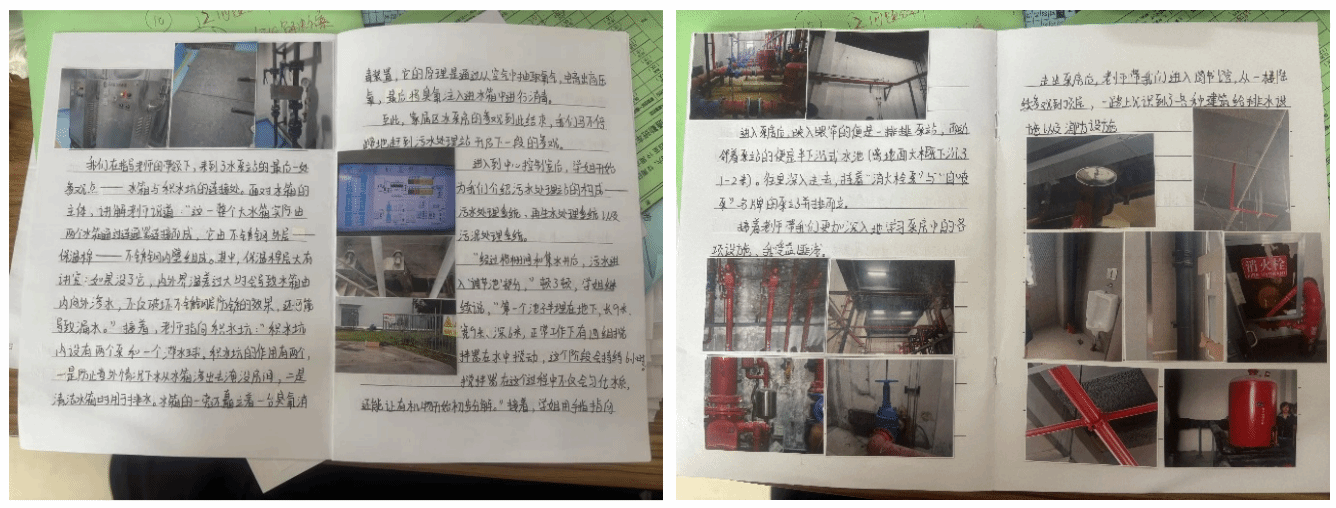 我们在指导老师的带领下，来到了水泵站的最后一处
参观点——水箱与积水坑的连接处。面对水箱的
主体，讲解老师说道："这一整个大水箱实际由
两个水箱通过连通管连接而成，它由不锈钢外层——
保温棉——不锈钢内壁组成。其中，保温棉层大有
讲究：如果没了它，内外界温差过大时会导致水箱由
内向外污水，不仅破坏不锈钢的效果，还可能
导致漏水。"接着，老师指向积水坑："积水坑
内设有两个泵和一个浮水球，积水坑的作用有两个，
一是防止意外情况下水从水箱溢出去淹没房间，二是
清洗水箱时用于排水。水箱的一旁还矗立着一台臭氧消
毒装置，它的原理是通过从空气中抽取氧气，电离出高压
氧，最后将臭氧注入进水箱中进行消毒。
至此，家属区水泵房的参观到此结束，我们马不停
蹄地赶到污水处理站开启下一段的参观。
进入到中心控制室后，学姐开始
为我们介绍污水处理站的构成——
污水处理系统、再生水处理系统以及
污泥处理系统。
"经过格栅间和集水井后，污水进
入'调节池'部分，"顿了顿，学姐继
续说，"第一个池子埋在地下，长9米、
宽9米、深6米，正常工作下有两组搅
拌器在水中搅动，这个阶段会持续6小时。
搅拌器在这个过程中不仅会匀化水质，
还能让有机物开始初步分解。"接着，学姐用手指向
进入泵房后，映入眼帘的便是一排排泵站，而踏
伴着泵站的便是半下沉式水池(离地面大概下沉了
1-2米)。往里深入走去，挂着"消火栓泵"与"自喷
泵"名牌的泵站并排而立。
接着老师带我们更加深入地学习泵房中的各
项设施，令我受益匪浅。
走出泵房后，老师带我们进入图书馆，从一楼陆
续参观到顶层，一路上认识到了各种建筑给排水设
施以及消防设施
消火栓